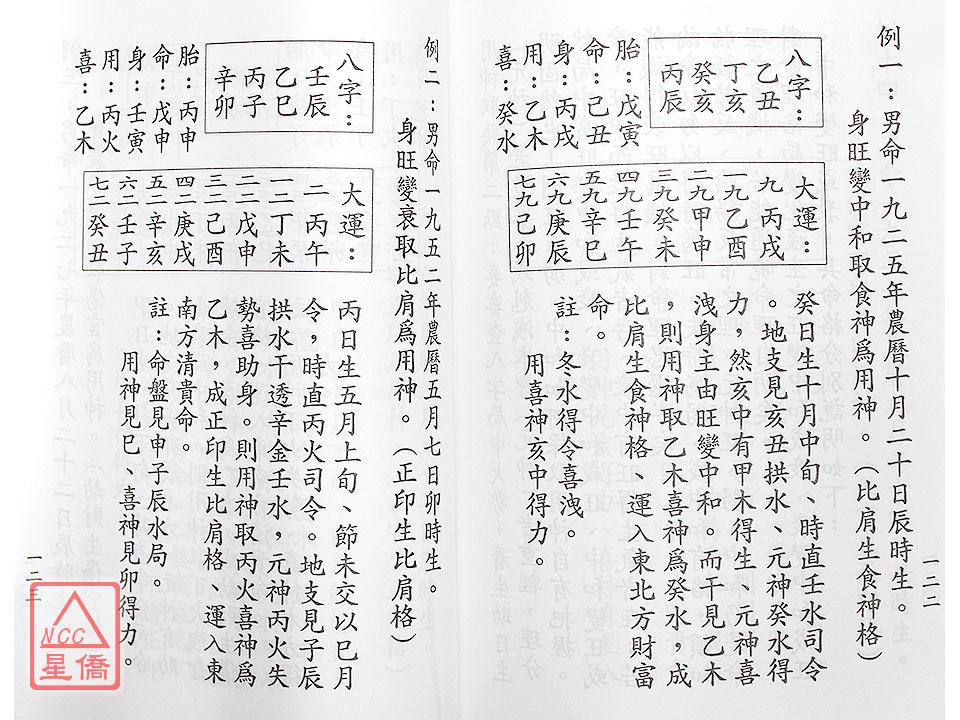 例一：男命一九二五年農曆十月二十日辰時生。
身旺變中和取食神為用神。（比肩生食神格）
八字：
乙丑
丁亥
癸亥
丙辰
胎：戊寅
命：己丑
身：丙戌
用：乙木
喜：癸水
大運：
九　丙戌
一九乙酉
二九甲申
三九癸未
四九壬午
五九辛巳
六九庚辰
七九己卯
癸日生十月中旬、時直壬水司令
。地支見亥丑拱水、元神癸水得
力，然亥中有甲木得生、元神喜
洩身主由旺變中和。而干見乙木
，則用神取乙木喜神為癸水，成
比肩生食神格、運入東北方財富
命。
註：冬水得令喜洩。
用喜神亥中得力。
一二二
例二：男命一九五二年農曆五月七日卯時生。
身旺變衰取比肩為用神。（正印生比肩格）
八字：
壬辰
乙巳
丙子
辛卯
胎：丙申
命：戊申
身：壬寅
用：丙火
喜：乙木
大運：
二　丙午
一二丁未
二二戊申
三二己酉
四二庚戌
五二辛亥
六二壬子
七二癸丑
丙日生五月上旬、節未交以巳月
令，時直丙火司令。地支見子辰
拱水干透辛金壬水，元神丙火失
勢喜助身。則用神取丙火喜神為
乙木，成正印生比肩格、運入東
南方清貴命。
註：命盤見申子辰水局。
用神見巳、喜神見卯得力。
一二三
NCC
星僑